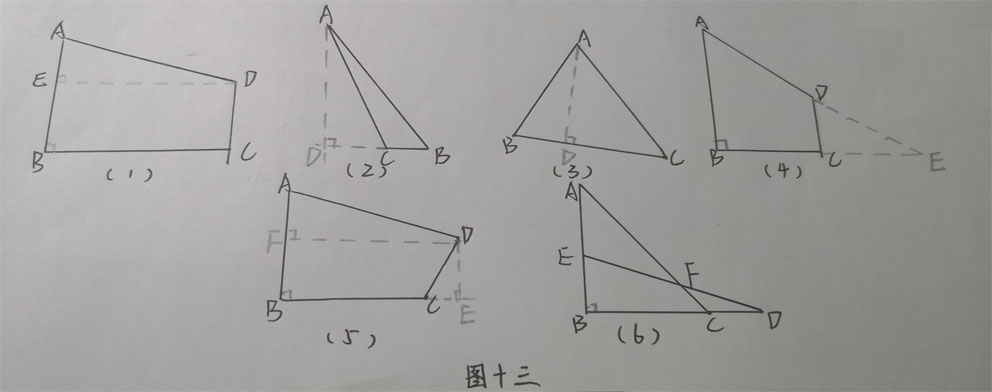 A
E
D
B
C
(1)
A
D
C
B
(2)
A
B
D
C
(3)
A
D
B
C
E
(4)
A
F
D
B
C
E
(5)
A
E
F
B
C
D
(6)
图十三